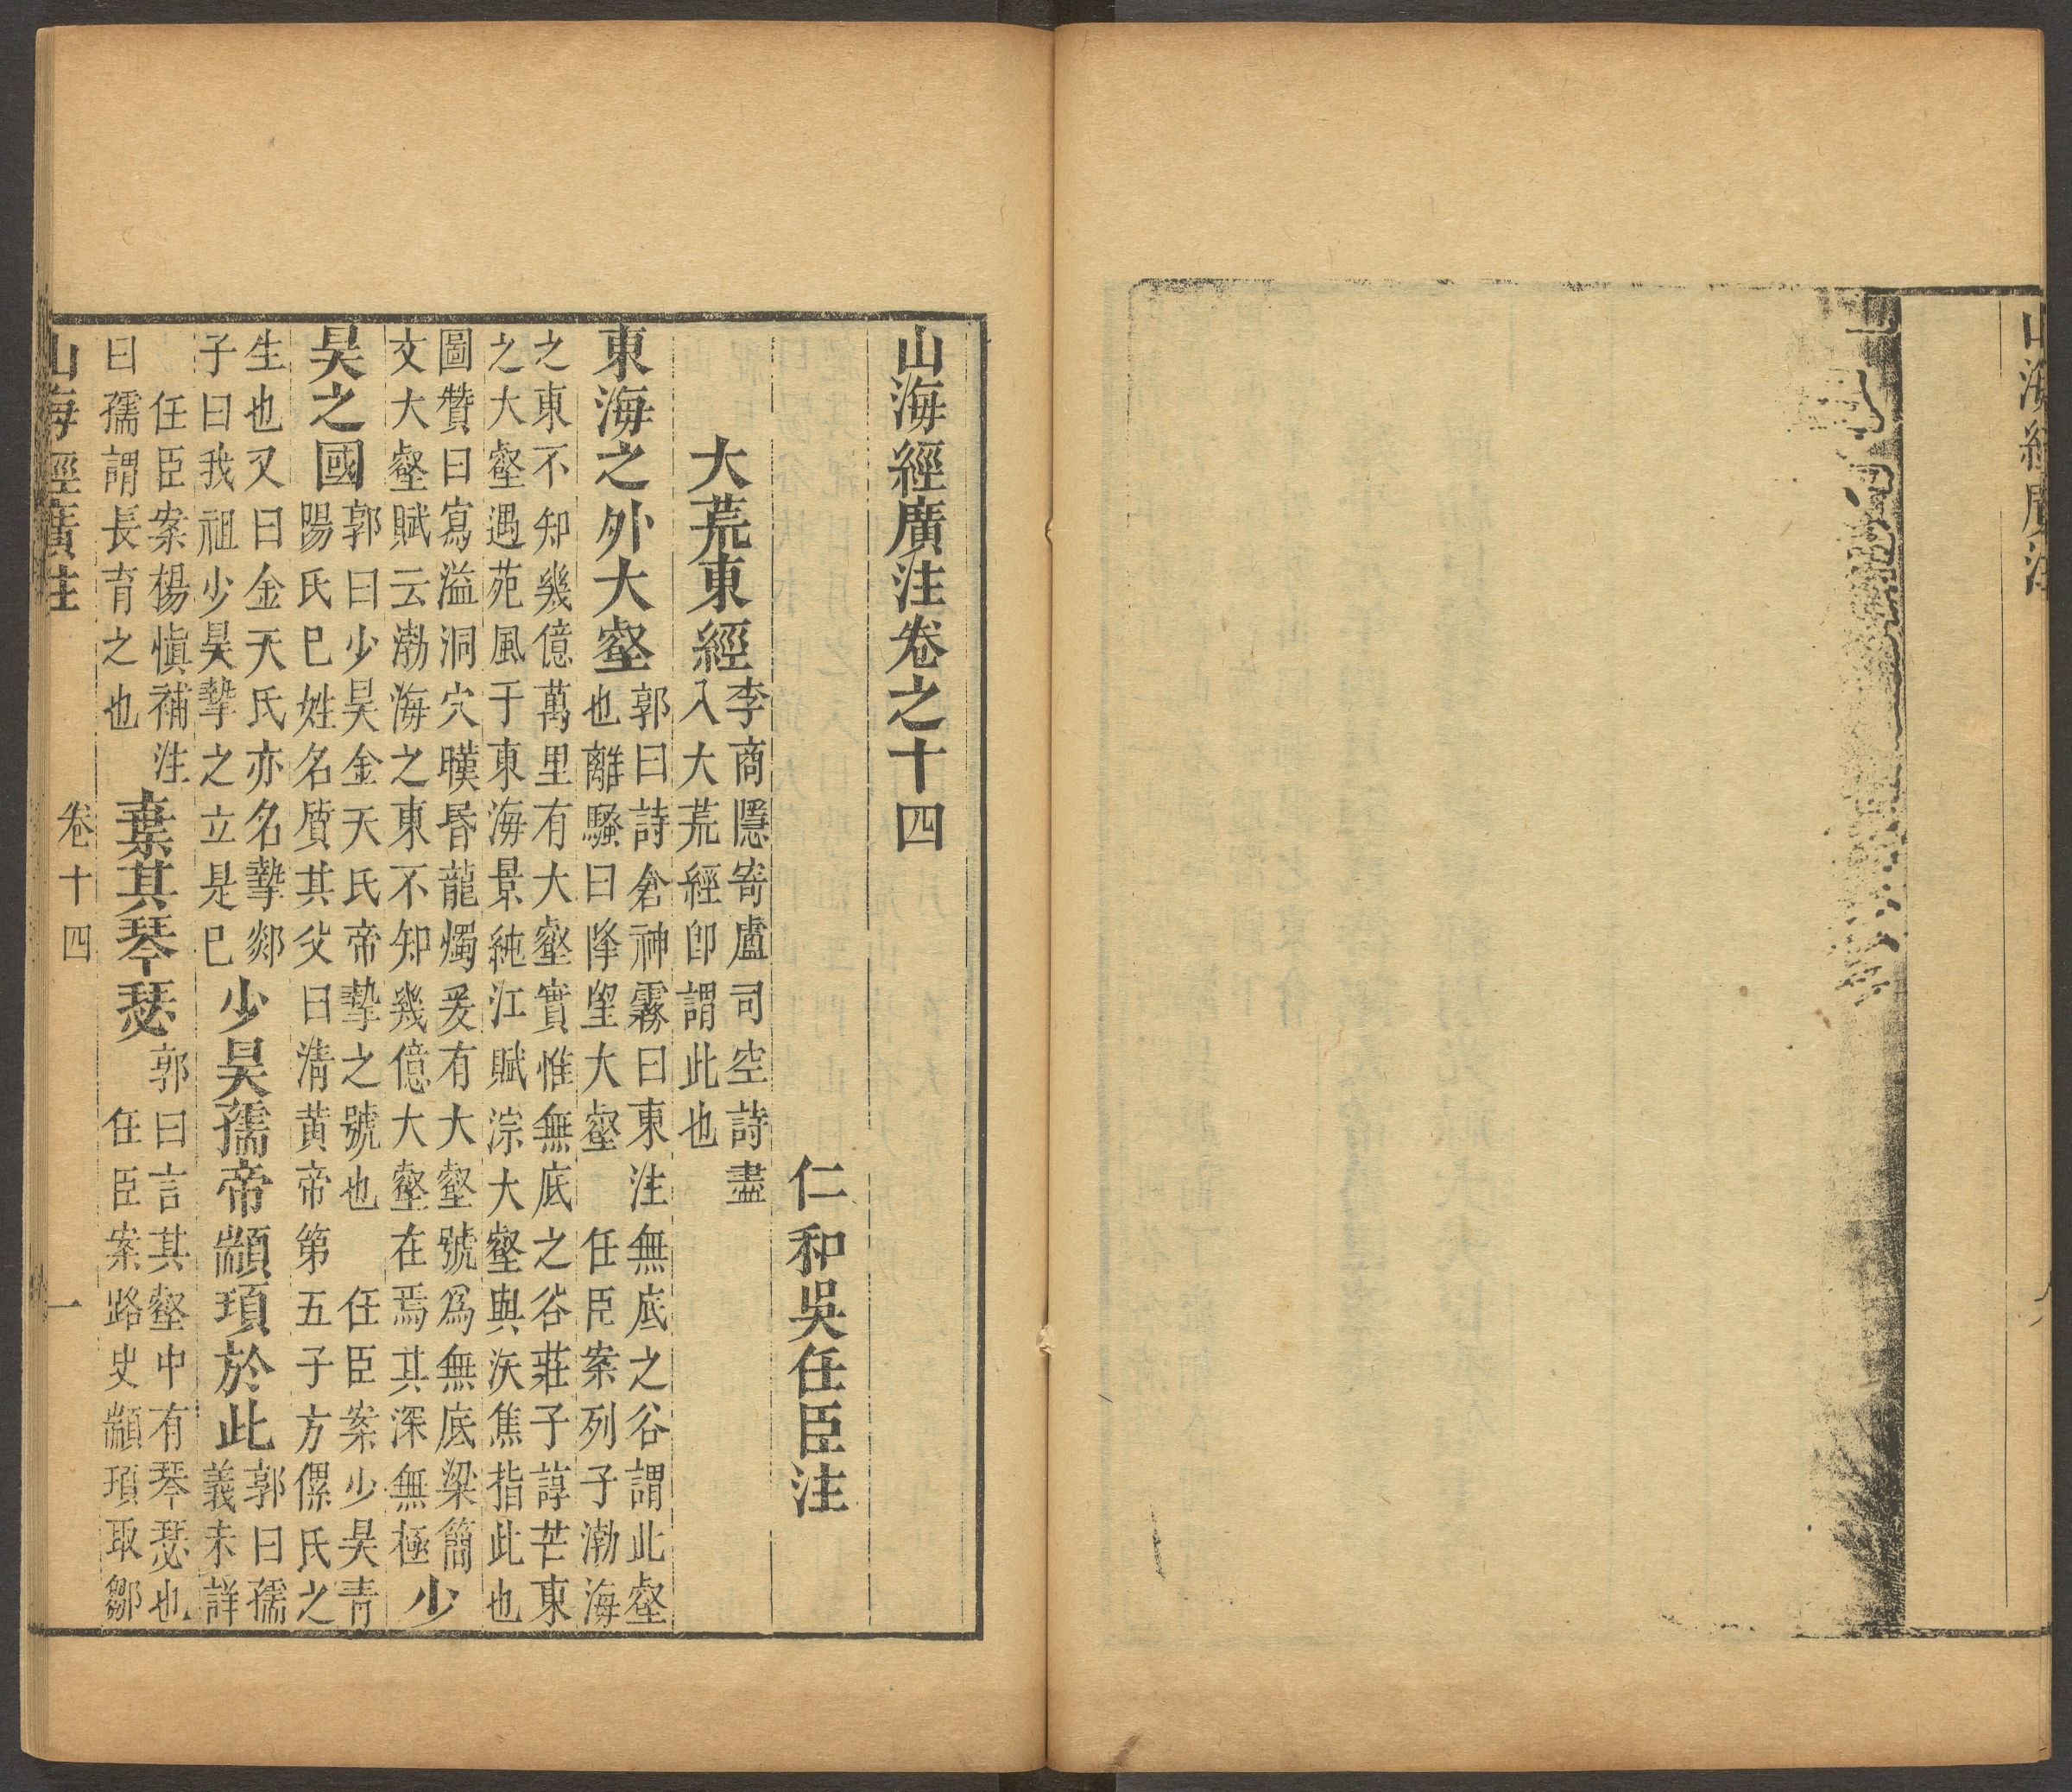 山海經廣注
山海經廣注卷之十四
仁和吳任臣注
大荒東經李商隱寄盧司空詩盡
入大荒經卽謂此也
東海之外大壑郭曰詩倉神霧曰東注無底之谷謂此壑
也離騷曰降望大壑　任臣案列子渤海
之東不知幾億萬里有大壑實惟無底之谷莊子諄芒東
之大壑遇苑風于東海景純江賦淙大壑與沃焦指此也
圖贊曰寫溢洞穴暵昬龍燭爰有大壑號爲無底梁簡
文大壑賦云渤海之東不知幾億大壑在焉其深無極少
昊之國郭曰少昊金天氏帝摯之號也　任臣案少昊青
陽氏巳姓名質其父曰清黃帝第五子方儽氏之
生也又曰金天氏亦名摯郯
子曰我祖少昊摯之立是巳少昊孺帝顓頊於此郭曰孺
義未詳
任臣案楊愼補注
曰孺謂長育之也棄其琴瑟郭曰言其壑中有琴瑟也
任臣案路史顓頊取鄒
山海經廣注　卷十四　一